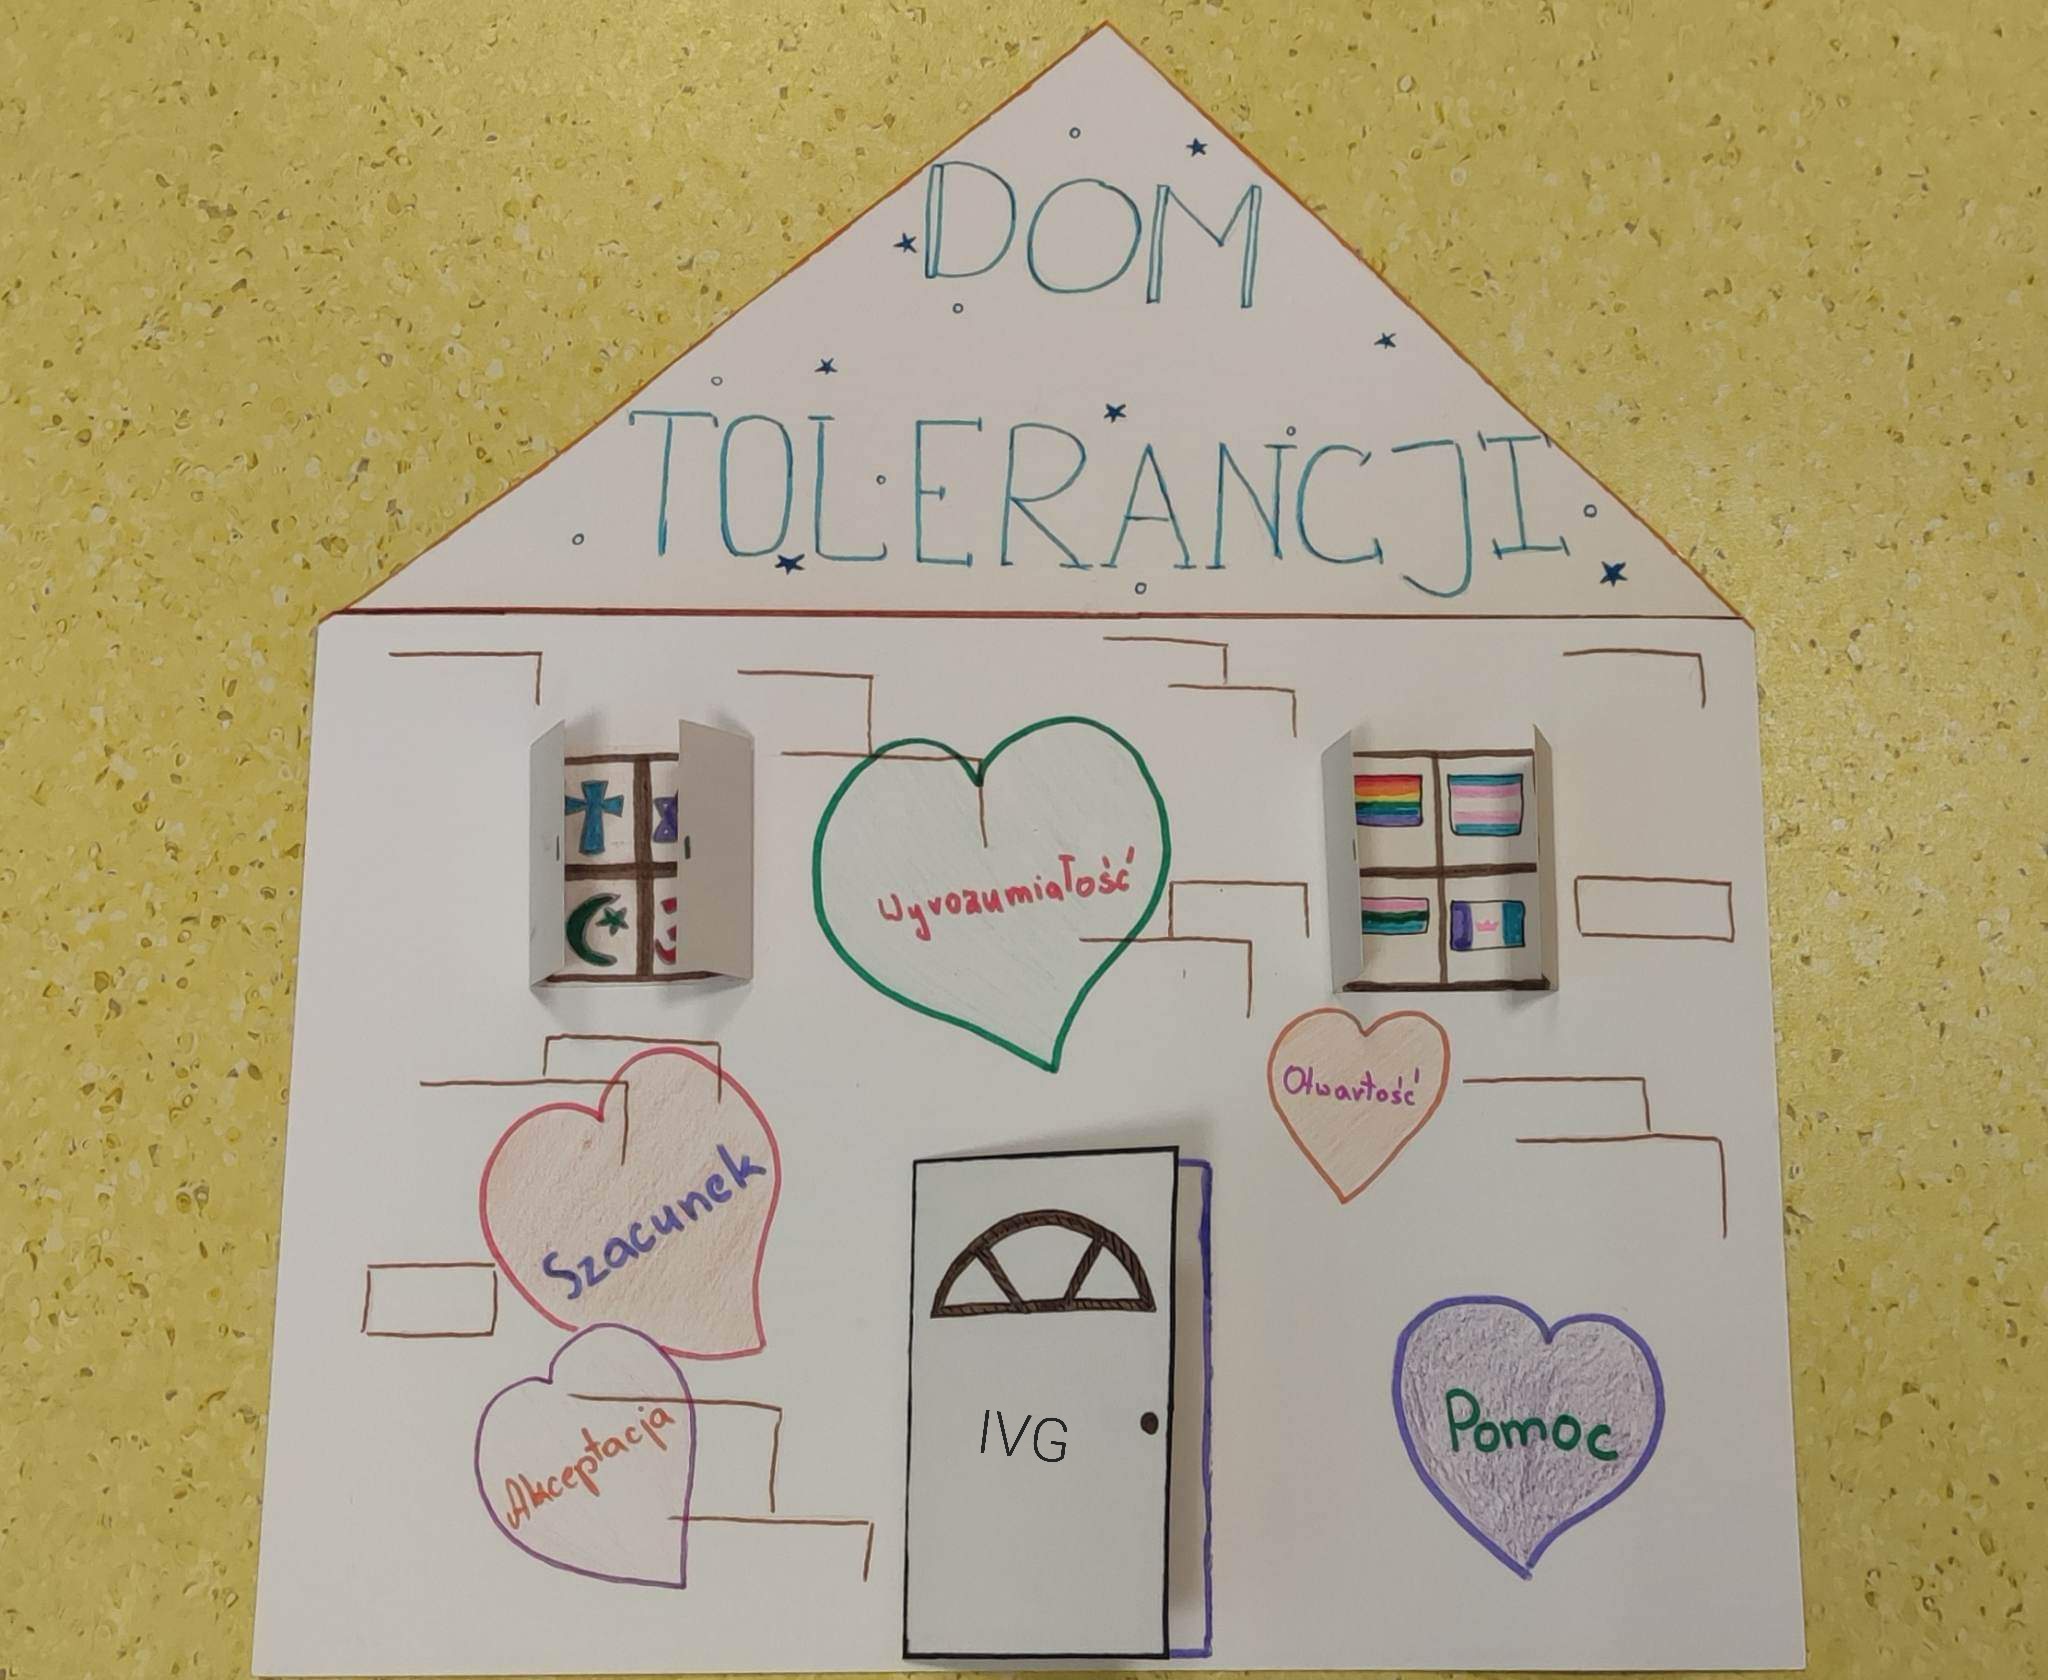 DOM
TOLERANCJI
Wyrozumiałość
Otwartość
Szacunek
Akceptacja
IVG
Pomoc